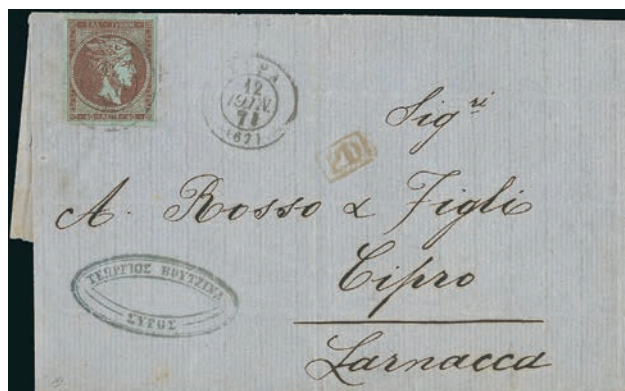 12
71
(67)
PD
Sig.ri
A. Rosso & Figli
Cipro
Larnacca
ΓΕΩΡΓΙΟΣ ΒΟΥΤΖΙΝΑ
ΣΥΡΟΣ